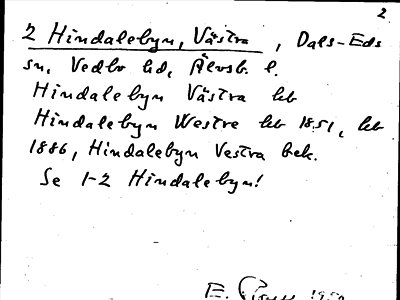 2
2 Hindalebyn, Västra, Dals-Eds
sn, Vedbo hd, Älvsb. l.
Hindalebyn Västra kb
Hindalebyn Westre kb 1851, kb
1886, Hindalebyn Vestra bek.
Se 1-2 Hindalebyn!
E.